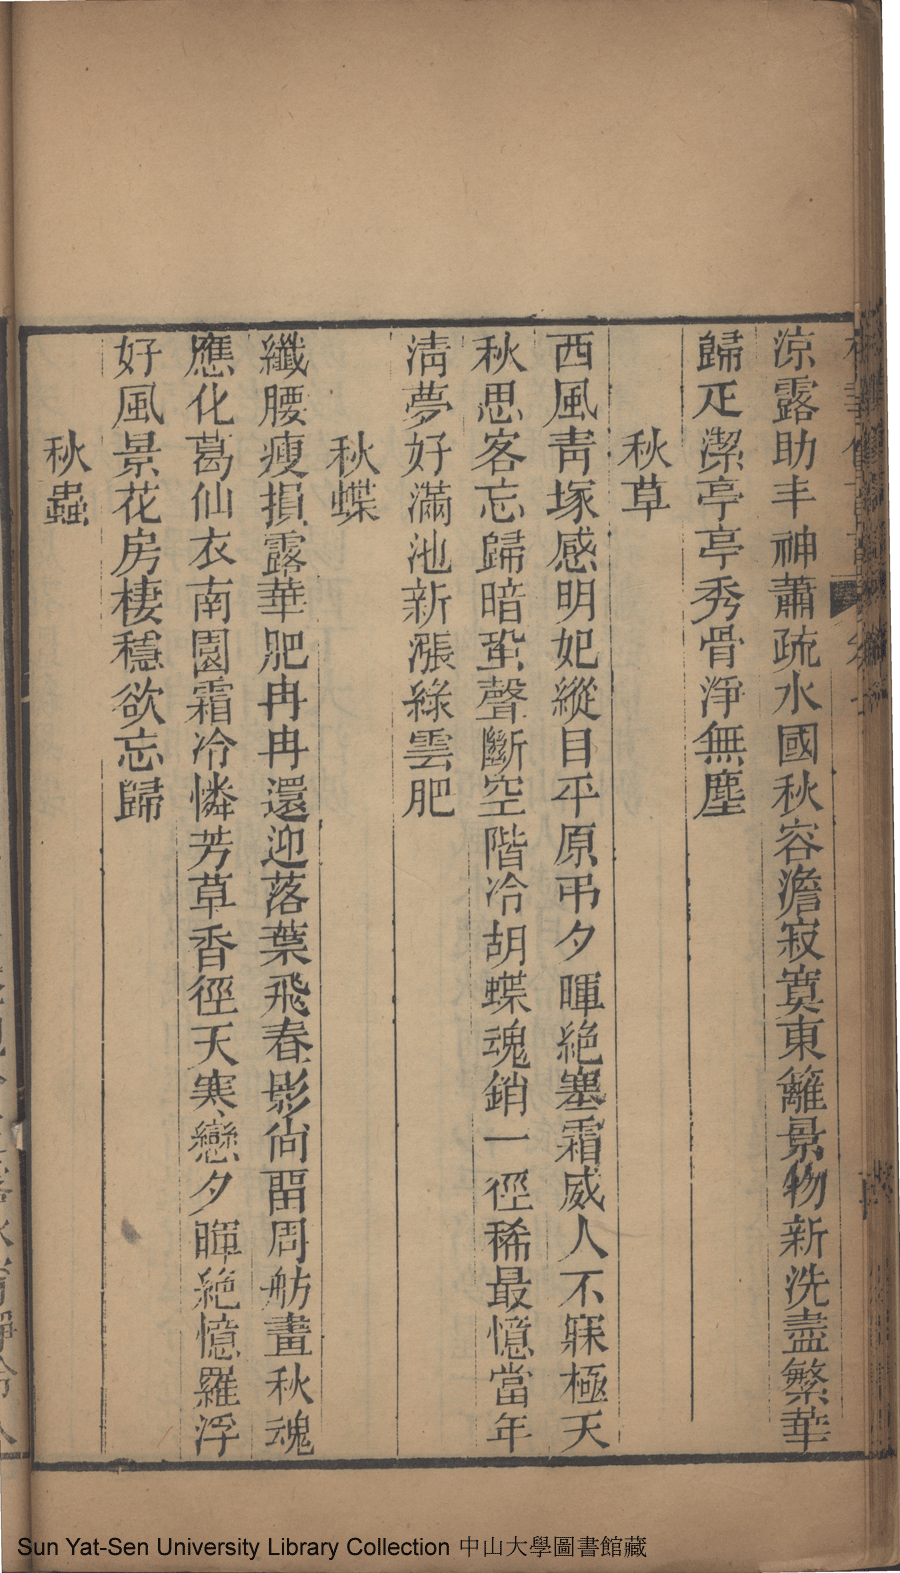 涼露助丰神蕭疏水國秋容澹寂寞東籬景物新洗盡繁華
歸疋潔亭亭秀骨淨無塵
秋草
西風靑塚感明妃縱目平原弔夕暉絶塞霜威人不寐極天
秋思客忘歸暗蛩聲斷空階冷胡蝶魂銷一徑稀最憶當年
淸夢好滿池新漲綠雲肥
秋蝶
纖腰瘦損露華肥冉冉還迎落葉飛春影尙畱周舫畫秋魂
應化葛仙衣南園霜冷憐芳草香徑天寒戀夕暉絶憶羅浮
好風景花房棲穩欲忘歸
秋蟲
Sun Yat-Sen University Library Collection 中山大學圖書館藏